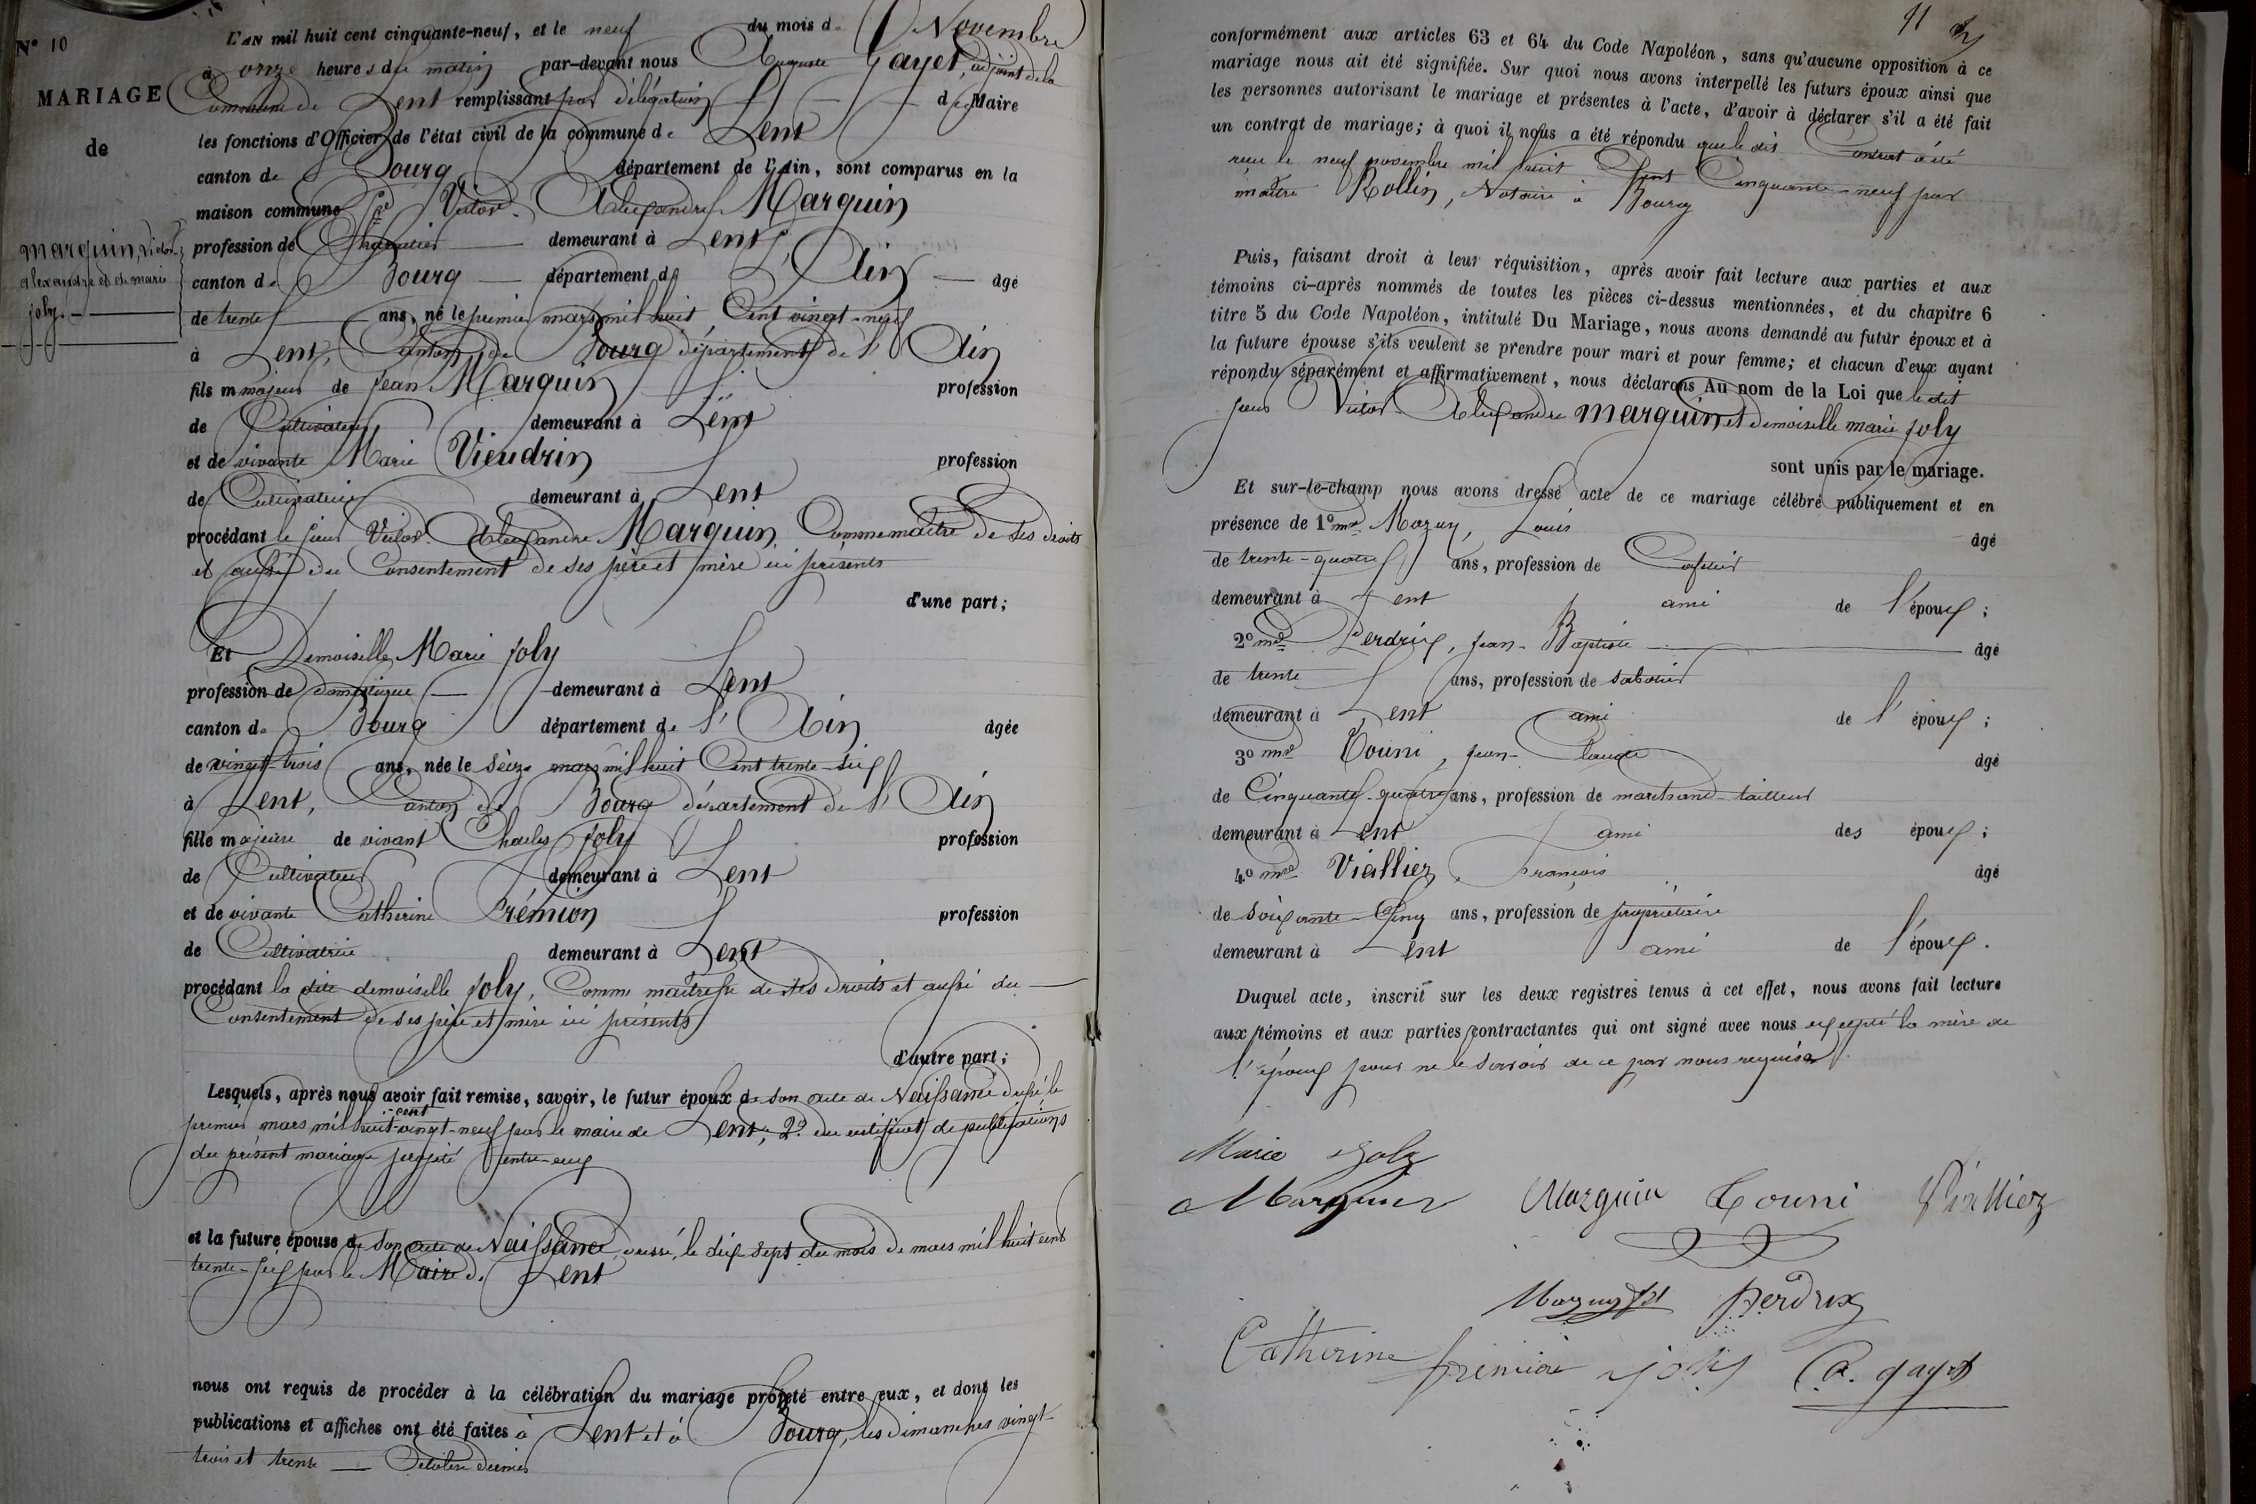 N° 10
MARIAGE
de
Marquin, Victor
alexandre et de marie
joly.
L'AN mil huit cent cinquante-neuf, et le neuf du mois de Novembre
à onze heures du matin par-devant nous Auguste Gayet, adjoint de la
Commune de Lent remplissant par délégation du Maire
les fonctions d'Officier de l'état civil de la commune de Lent
canton de Bourg département de l'Ain, sont comparus en la
maison commune Victor Alexandre Marquin
profession de demeurant à Lent
canton de Bourg département de l'Ain âgé
de trente ans, né le premier mars mil huit Cent vingt-neuf
à Lent, Canton de Bourg département de l'Ain
fils m majeur de Jean Marquin profession
de Cultivateur demeurant à Lent
et de vivante Marie Vieudrin profession
de Cultivatrice demeurant à Lent
procédant le sieur Victor Alexandre Marquin Comme maître de ses droits
et aussi du Consentement de ses père et mère ici présents
d'une part;
Et Demoiselle Marie Joly
profession de domestique demeurant à Lent
canton de Bourg département de l'Ain âgée
de vingt-trois ans, née le seize mars mil huit Cent trente-six
à Lent, Canton de Bourg département de l'Ain
fille majeure de vivant Charles Joly profession
de Cultivateur demeurant à Lent
et de vivante Catherine Frémion profession
de Cultivatrice demeurant à Lent
procédant la dite demoiselle Joly, Comme maîtresse de ses droits et aussi du
Consentement de ses père et mère ici présents
d'autre part;
Lesquels, après nous avoir fait remise, savoir, le futur époux de son acte de Naissance dressé le
premier mars mil huit cent vingt-neuf par le maire de Lent, 2° du certificat de publications
du présent mariage projeté entre eux
et la future épouse de son acte de Naissance, dressé, le dix sept du mois de mars mil huit cent
trente-six par le Maire de Lent
nous ont requis de procéder à la célébration du mariage projeté entre eux, et dont les
publications et affiches ont été faites à Lent et à Bourg, les dimanches vingt-
trois et trente Octobre dernier
91
conformément aux articles 63 et 64 du Code Napoléon, sans qu'aucune opposition à ce
mariage nous ait été signifiée. Sur quoi nous avons interpellé les futurs époux ainsi que
les personnes autorisant le mariage et présentes à l'acte, d'avoir à déclarer s'il a été fait
un contrat de mariage; à quoi il nous a été répondu que le dit Contrat a été
reçu le neuf novembre mil huit Cent Cinquante-neuf par
maître Rollin, Notaire à Bourg
Puis, faisant droit à leur réquisition, après avoir fait lecture aux parties et aux
témoins ci-après nommés de toutes les pièces ci-dessus mentionnées, et du chapitre 6
titre 5 du Code Napoléon, intitulé Du Mariage, nous avons demandé au futur époux et à
la future épouse s'ils veulent se prendre pour mari et pour femme; et chacun d'eux ayant
répondu séparément et affirmativement, nous déclarons Au nom de la Loi que le dit
sieur Victor Alexandre Marquin et demoiselle marie Joly
sont unis par le mariage.
Et sur-le-champ nous avons dressé acte de ce mariage célébré publiquement et en
présence de 1° mr Mazuy, Louis âgé
de trente-quatre ans, profession de Cafetier
demeurant à Lent ami de l'époux;
2° mr Perdrix, Jean-Baptiste âgé
de trente ans, profession de sabotier
demeurant à Lent ami de l'époux;
3° mr Touni, Jean-Claude âgé
de Cinquante-quatre ans, profession de marchand-tailleur
demeurant à Lent ami des époux;
4° mr Viallier, François âgé
de soixante-Cinq ans, profession de propriétaire
demeurant à Lent ami de l'époux.
Duquel acte, inscrit sur les deux registres tenus à cet effet, nous avons fait lecture
aux témoins et aux parties contractantes qui ont signé avec nous excepté la mère de
l'époux pour ne le savoir de ce par nous requise
Marie Joly
Marquin Marquin Touni Viallier
Mazuy Perdrix
Catherine fremion joly a. gayet